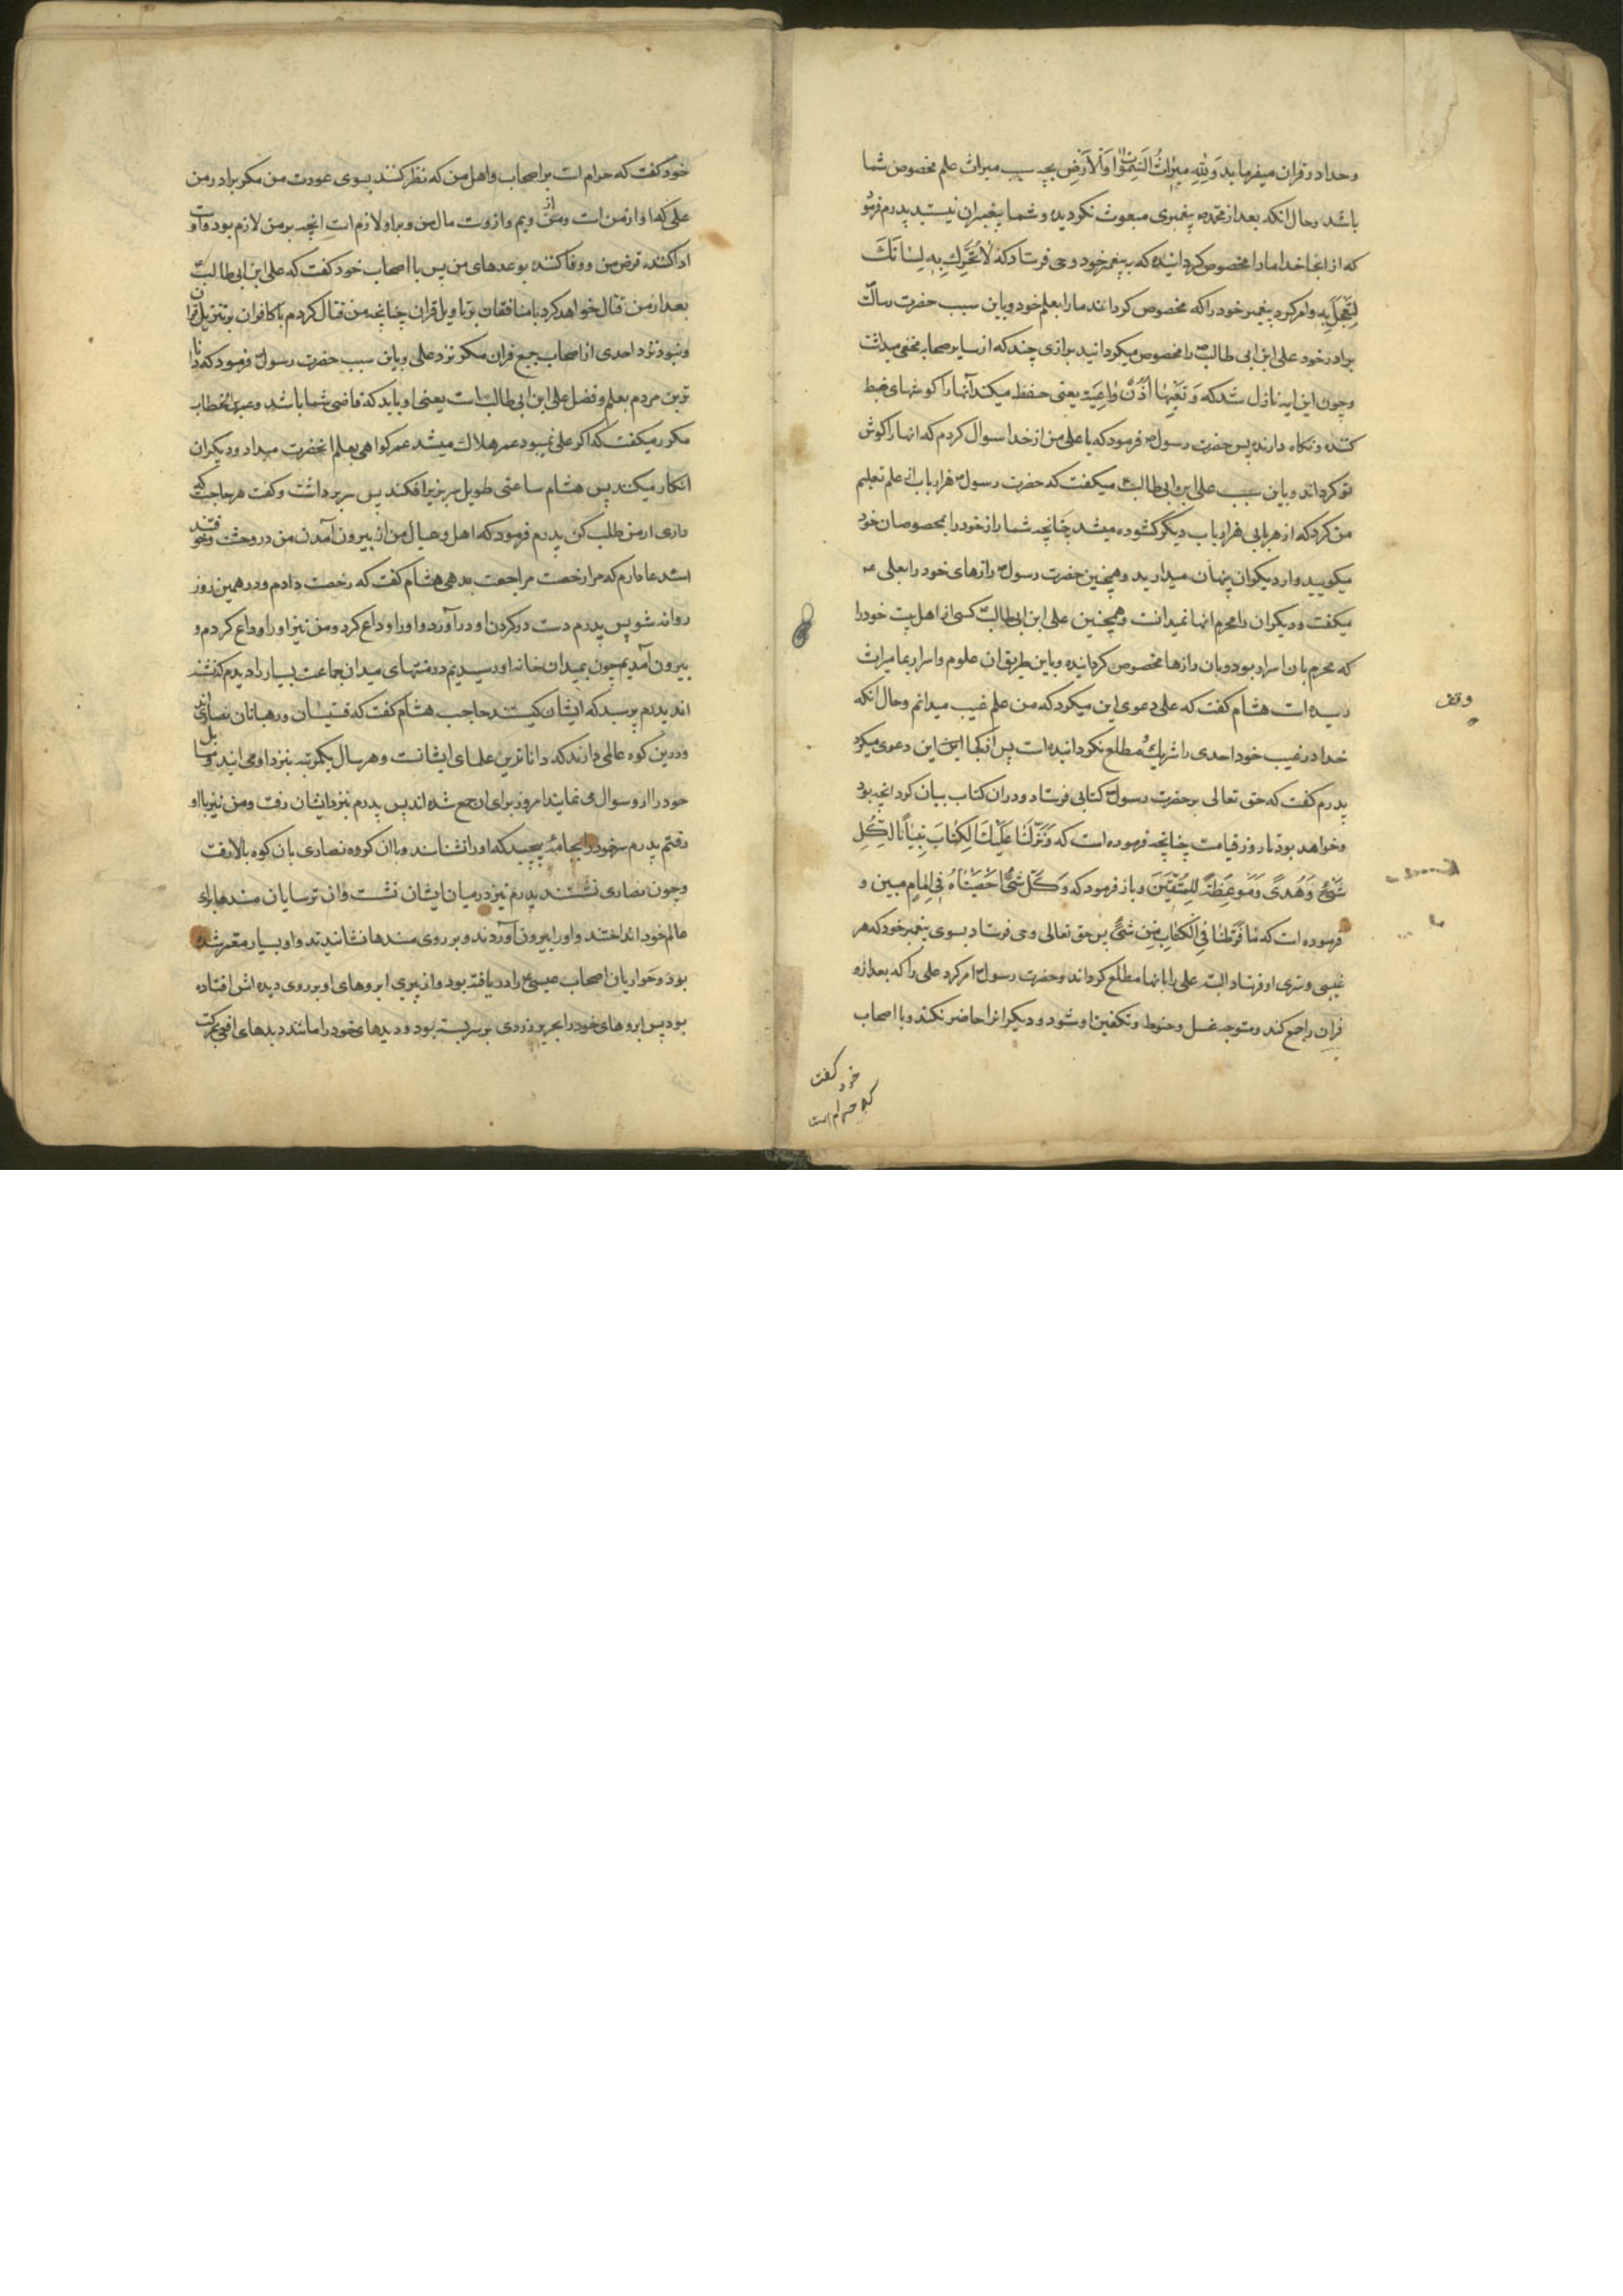 وخدا در قران میفرماید وَلِلّٰهِ مِیرٰاثُ السَّمٰوٰاتِ وَالْاَرْضِ بچه سبب میراث علم مخصوص شما
باشد وحال انکه بعد از محمد پیغمبری مبعوث نکردیده وشما پیغمبران نیستید پدرم فرمود
که از انجا خدا ما را مخصوص کردانیده که به پیغمبر خود وحی فرستاد که لاٰ تُحَرِّكْ بِهِ لِسٰانَكَ
لِتَعْجَلَ بِهِ وامر کرد پیغمبر خود را که مخصوص کرداند ما را بعلم خود وباین سبب حضرت رسالت
برادر خود علی ابن ابی طالب را مخصوص میکردانید برازی چند که از سایر صحابه مخفی میداشت
وچون این ایه نازل شد که وَتَعِیَهٰا اُذُنٌ وٰاعِیَة یعنی حفظ میکند آنها را کوشهای ضبط
کننده ونکاه دارنده پس حضرت رسول فرمود که یا علی من از خدا سوال کردم که انها را کوش
تو کرداند وباین سبب علی ابن ابی طالب میکفت که حضرت رسول هزار باب از علم تعلیم
من کرد که از هر بابی هزار باب دیکر کشوده میشد چنانچه شما راز خود را بمخصوصان خود
میکویید واز دیکران پنهان میدارید وهمچنین حضرت رسول رازهای خود را بعلی
میکفت ودیکران را محرم انها نمیدانست وهمچنین علی ابن ابی طالب کسی از اهل بیت خود را
که محرم بان اسرار بود وبان رازها مخصوص کردانیده وباین طریق ان علوم واسرار بما میراث
رسیده است هشام کفت که علی دعوی این میکرد که من علم غیب میدانم وحال انکه
خدا در غیب خود احدی را شریک ومطلع نکردانیده است پس از کجا این دعوی میکرد
پدرم کفت که حق تعالی بر حضرت رسول کتابی فرستاد ودران کتاب بیان کرد انچه بود
وخواهد بود تا روز قیامت چنانچه فرموده است که وَنَزَّلْنٰا عَلَیْكَ الْکِتٰابَ تِبْیٰاناً لِکُلِّ
شَیْءٍ وَهُدًی وَمَوعِظَةً لِلْمُتَّقِینَ وباز فرمود که وَکُلَّ شَیْءٍ اَحْصَیْنٰاهُ فِی اِمٰامٍ مبین و
فرموده است که مٰا فَرَّطْنٰا فِی الْکِتٰابِ مِنْ شَیْءٍ پس حق تعالی وحی فرستاد بسوی پیغمبر خود که هر
غیبی وسری که او فرستاد البته علی را بانها مطلع کرداند وحضرت رسول امر کرد علی را که بعد از او
قران را جمع کند ومتوجه غسل وحنوط وتکفین او شود ودیکرانرا حاضر نکند وبا اصحاب
خود کفت
که حرام است
وقف
خود کفت که حرام است بر اصحاب واهل من که نظر کنند بسوی عورت من مکر برادر من
علی که او از من است ومن از ویم واز وست مال من وبر او لازم است انچه بر من لازم بود واوست
ادا کننده قرض من ووفا کننده بوعدهای من پس با اصحاب خود کفت که علی ابن ابی طالب
بعد از من قتال خواهد کرد با منافقان بر تاویل قران چنانچه من قتال کردم با کافران بر تنزیل قران
ونبود نزد احدی از اصحاب جمع قران مکر نزد علی وباین سبب حضرت رسول فرمود که دانا
ترین مردم بعلم وفضل علی ابن ابی طالب است یعنی او باید که قاضی شما باشد وعمر ابن الخطاب
مکرر میکفت که اکر علی نمیبود عمر هلاك میشد عمر کواهی بعلم انحضرت میداد ودیکران
انکار میکنند پس هشام ساعتی طویل سر بزیر افکند پس سر برداشت وکفت هر حاجت که
داری از من طلب کن پدرم فرمود که اهل وعیال من از بیرون آمدن من در وحشت وخوفند
استدعا دارم که مرا رخصت مراجعت بدهی هشام کفت که رخصت دادم ودر همین روز
روانه شو پس پدرم دست در کردن او در آورد واو را وداع کرد ومن نیز او را وداع کردم و
بیرون آمدیم چون بمیدان خانه او رسیدیم در منتهای میدان جماعت بسیار را دیدم که نشسته
اند پدرم پرسید که ایشان کیستند حاجب هشام کفت که قسیسان ورهبانان نصاری اند
ودرین کوه عالمی دارند که داناترین علمای ایشانست وهر سال یکمرتبه بنزد او می ایند ومسایل
خود را از او سوال می نمایند امروز برای ان جمع شده اند پس پدرم بنزد ایشان رفت ومن نیز با او
رفتم پدرم سر خود را بجامه پیچید که او را نشناسند وبا ان کروه نصاری بان کوه بالا رفت
وچون نصاری نشستند پدرم نیز در میان ایشان نشست وان ترسایان مسندها برای
عالم خود انداختند واو را بیرون آوردند وبر روی مسندها نشانیدند واو بسیار معمر شده
بود وحواریان اصحاب عیسی را دریافته بود واز پیری ابروهای او بر روی دیده اش افتاده
بود پس ابروهای خود را بحریر زردی بر سر بسته بود ودیدهای خود را مانند دیدهای افعی بحرکت